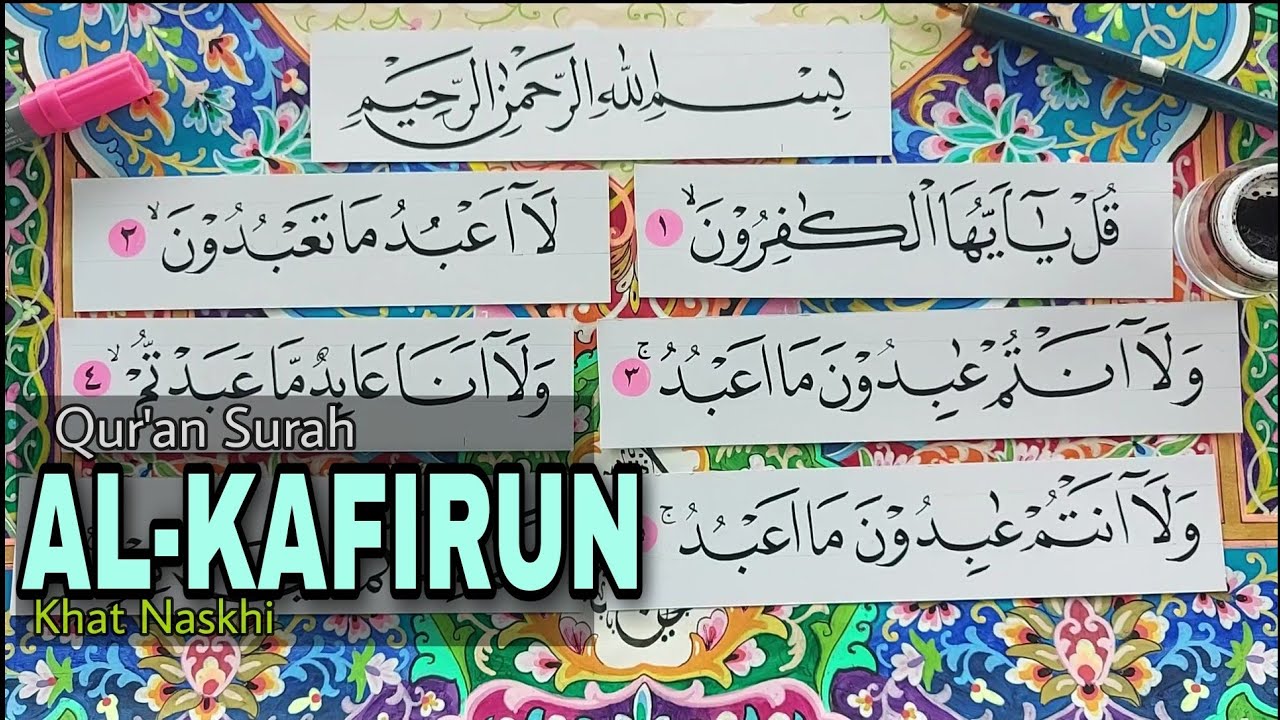 بِسْمِ اللهِ الرَّحْمٰنِ الرَّحِيْمِ
قُلْ يٰٓاَيُّهَا الْكٰفِرُوْنَۙ ١
لَآ اَعْبُدُ مَا تَعْبُدُوْنَۙ ٢
وَلَآ اَنْتُمْ عٰبِدُوْنَ مَآ اَعْبُدُۚ ٣
وَلَآ اَنَا۠ عَابِدٌ مَّا عَبَدْتُّمْۙ ٤
وَلَآ اَنْتُمْ عٰبِدُوْنَ مَآ اَعْبُدُۚ
Qur'an Surah
AL-KAFIRUN
Khat Naskhi